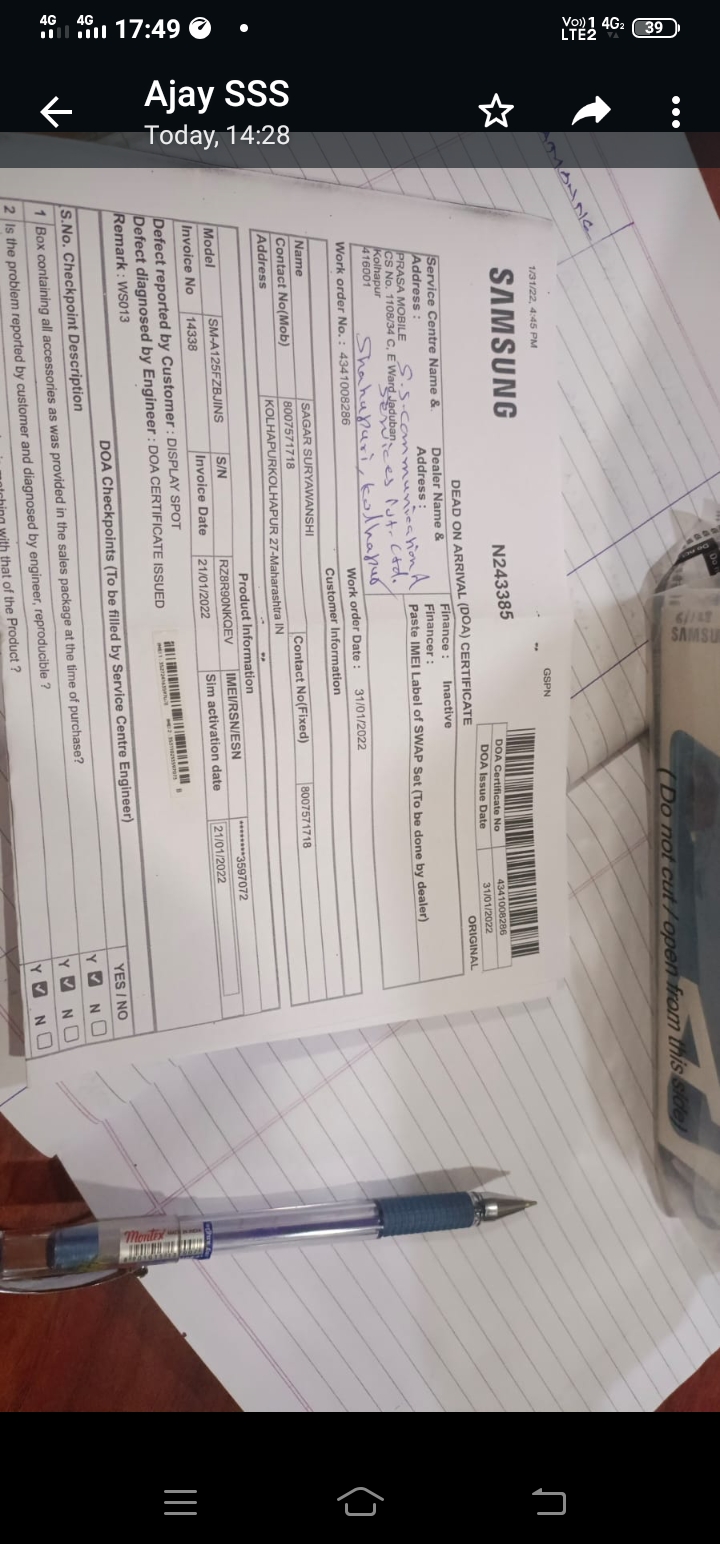 4G 4G 17:49 Vo)) 1 4G2 LTE2 39
Ajay SSS
Today, 14:28
1/31/22, 4:45 PM
GSPN
SAMSUNG
N243385
DOA Certificate No 4341008286
DOA Issue Date 31/01/2022
DEAD ON ARRIVAL (DOA) CERTIFICATE
ORIGINAL
Service Centre Name & Address :
PRASA MOBILE
CS No. 1108/34 C, E Ward Jaduban,
Kolhapur
416001
Dealer Name & Address :
S.S. Communication &
Services Pvt. Ltd.
Shahupuri, Kolhapur
Finance : Inactive
Financer :
Paste IMEI Label of SWAP Set (To be done by dealer)
Work order No. : 4341008286 Work order Date : 31/01/2022
Customer Information
Name SAGAR SURYAWANSHI
Contact No(Mob) 8007571718 Contact No(Fixed) 8007571718
Address KOLHAPURKOLHAPUR 27-Maharashtra IN
Product Information
Model SM-A125FZBJINS S/N RZ8R90NKQEV IMEI/RSN/ESN ********3597072
Invoice No 14338 Invoice Date 21/01/2022 Sim activation date 21/01/2022
Defect reported by Customer : DISPLAY SPOT
Defect diagnosed by Engineer : DOA CERTIFICATE ISSUED
Remark : WS013
DOA Checkpoints (To be filled by Service Centre Engineer)
S.No. Checkpoint Description YES / NO
1 Box containing all accessories as was provided in the sales package at the time of purchase? Y N
2 Is the problem reported by customer and diagnosed by engineer, reproducible ? Y N
matching with that of the Product ? Y N
(Do not cut / open from this side)
SAMSU
Montex